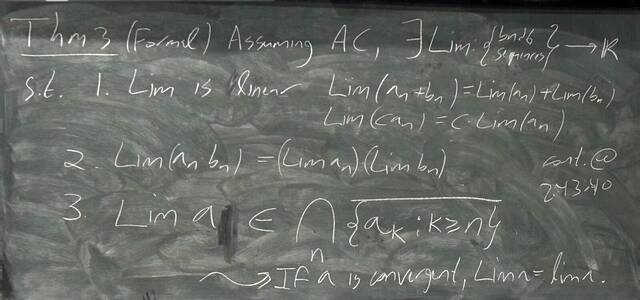 Thm 3 (Formal) Assuming AC, ∃ Lim: {bndd sequences} → ℝ
s.t. 1. Lim is linear Lim(aₙ+bₙ)=Lim(aₙ)+Lim(bₙ)
Lim(c aₙ) = c·Lim(aₙ)
2. Lim(aₙbₙ) = (Lim aₙ)(Lim bₙ)
cont. @
2:43:40
3. Lim a ∈ ⋂ₙ \overline{{aₖ : k≥n}}
⇝ If a is convergent, Lim a = lim a.